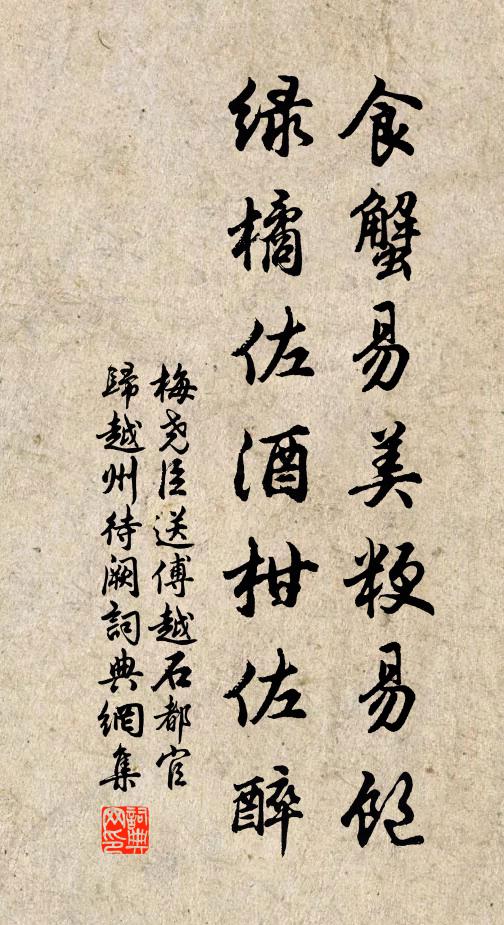 食蟹易美粳易飽
绿橘佐酒柑佐醉
梅尧臣送傅越石都官
歸越州待阙詞典網集
詞典
网印